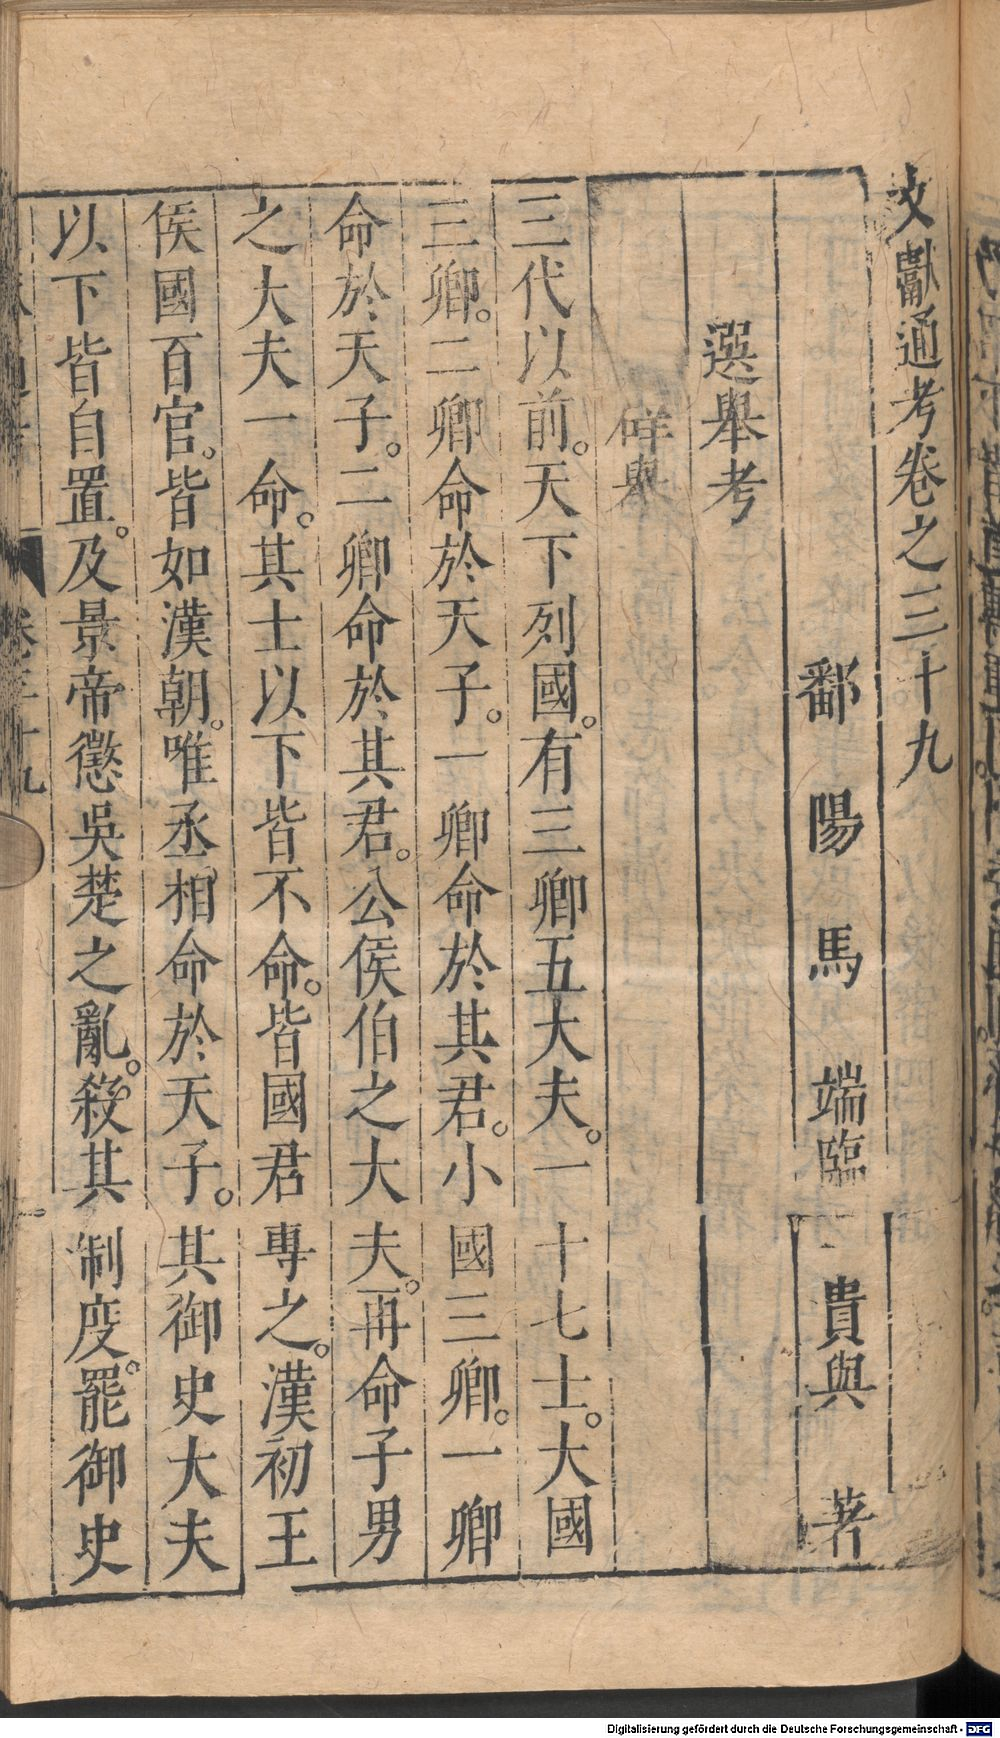 文獻通考卷之三十九
鄱陽馬端臨貴與著
選舉考
辟舉
三代以前。天下列國。有三卿五大夫。一十七士。大國
三卿。二卿命於天子。一卿命於其君。小國三卿。一卿
命於天子。二卿命於其君。公侯伯之大夫。再命子男
之大夫一命。其士以下皆不命。皆國君專之。漢初王
侯國百官。皆如漢朝。唯丞相命於天子。其御史大夫
以下皆自置。及景帝懲吳楚之亂。殺其制度。罷御史
卷三十九
Digitalisierung gefördert durch die Deutsche Forschungsgemeinschaft - DFG